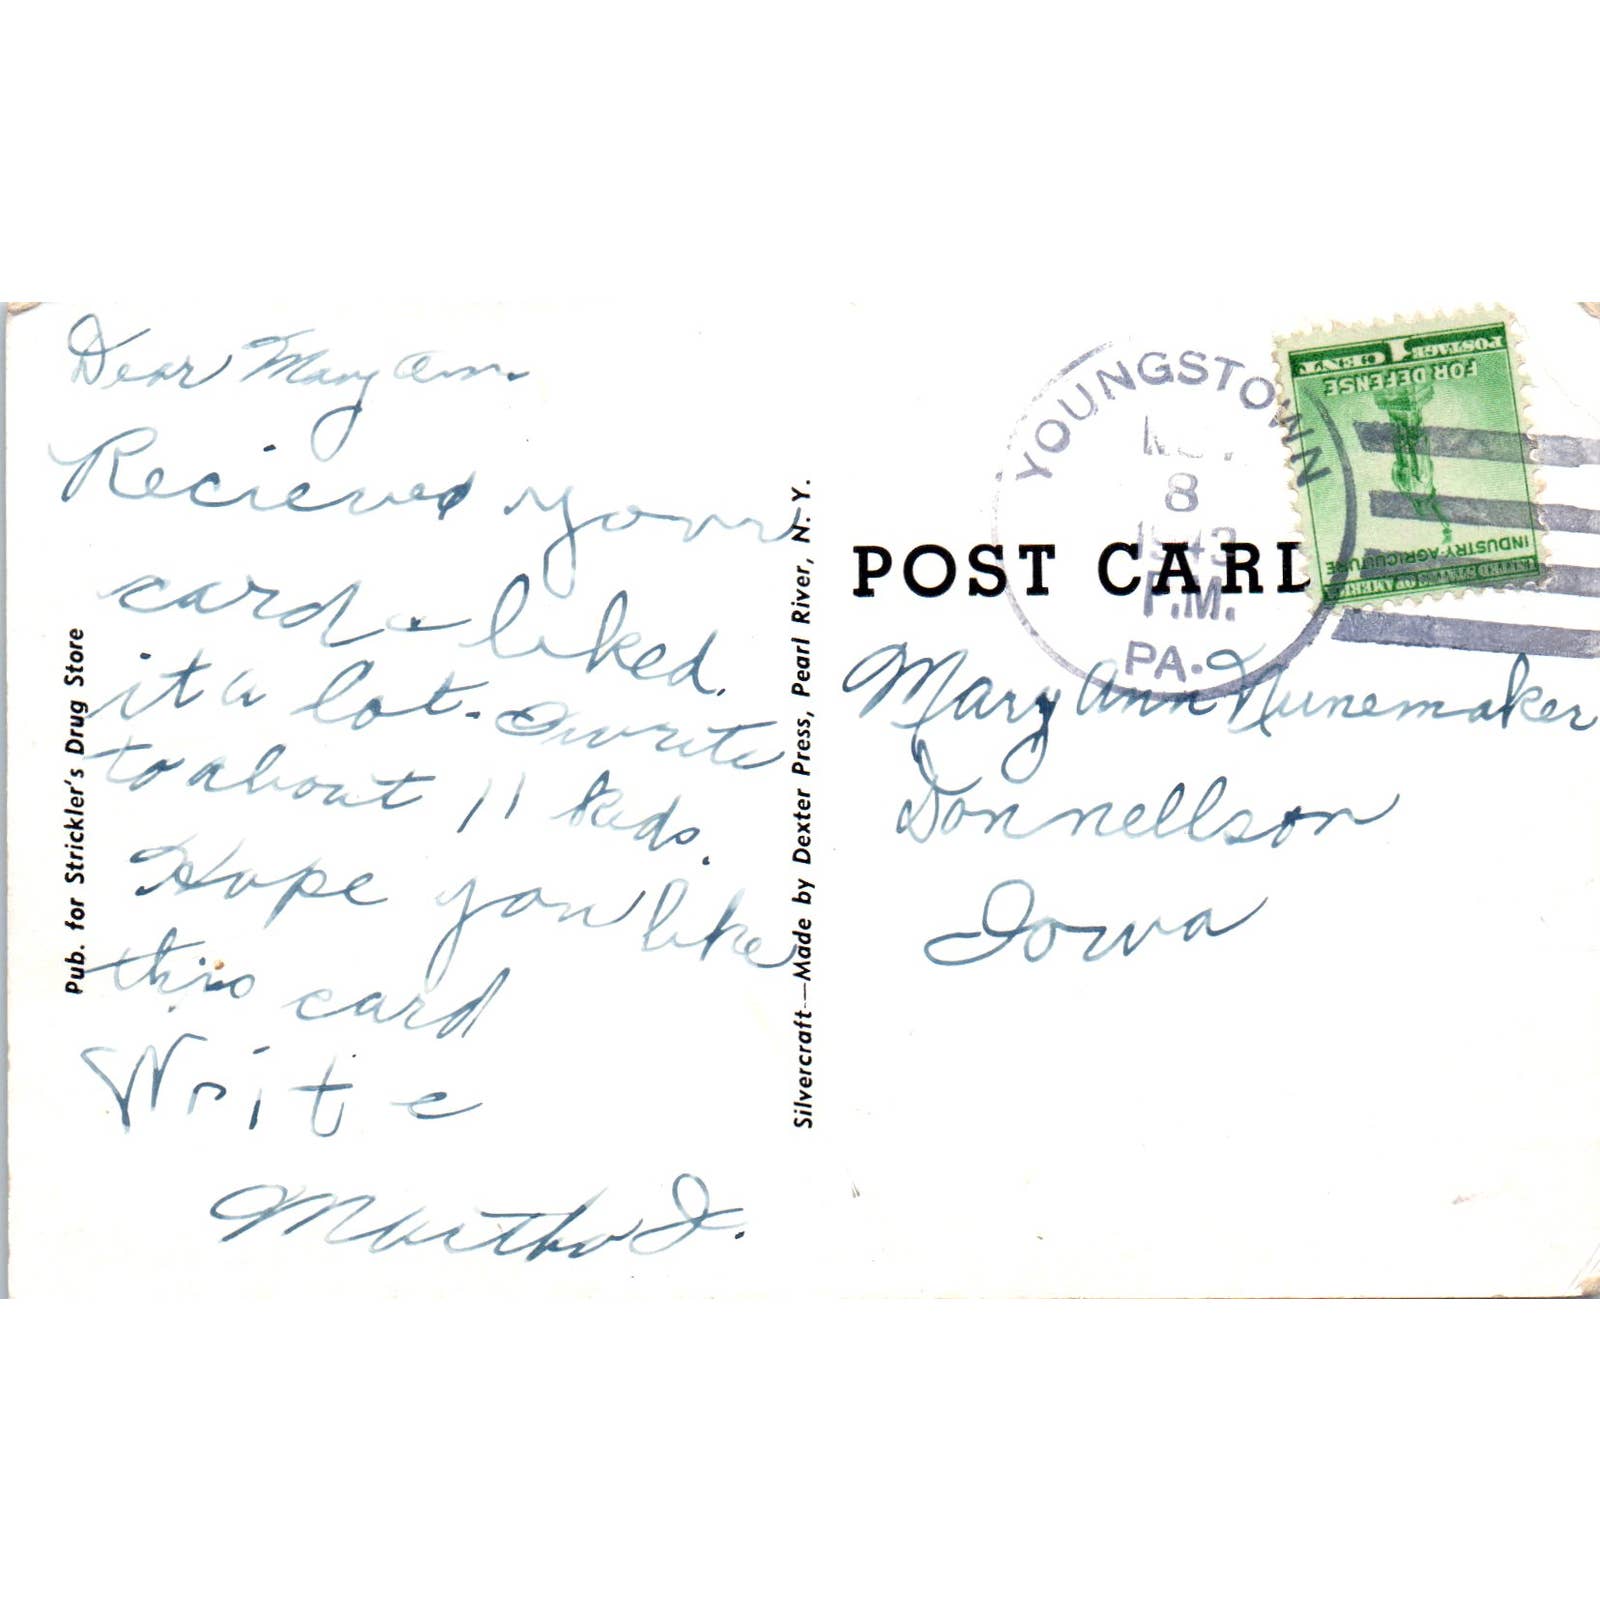 Dear Mary Ann.
Recieved your
card & liked.
it a lot. I write
to about 11 kids.
Hope you like
this card
Write
Martha J.
Pub. for Strickler's Drug Store
Silvercraft—Made by Dexter Press, Pearl River, N. Y.
YOUNGSTOWN
8
1943
P.M.
PA.
POSTAGE 1 CENT
FOR DEFENSE
INDUSTRY-AGRICULTURE
UNITED STATES OF AMERICA
POST CARD
Mary Ann Nunemaker
Donnellson
Iowa